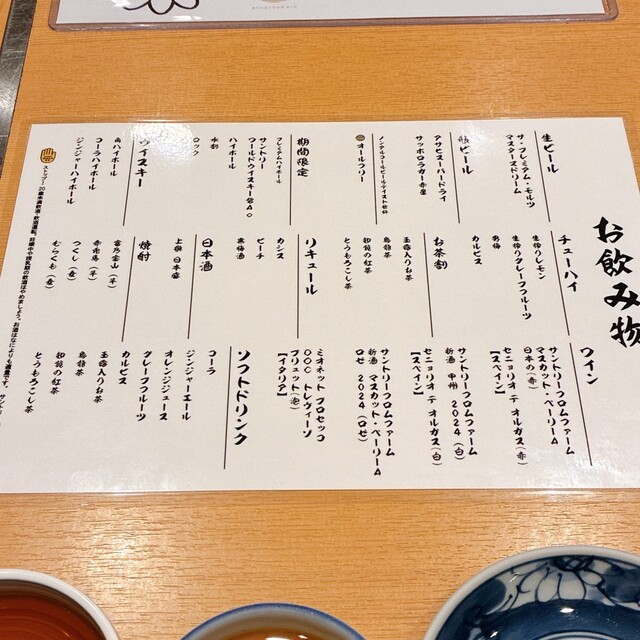 お飲み物
生ビール
ザ・プレミアム・モルツ
マスターズドリーム
瓶ビール
アサヒスーパードライ
サッポロラガー赤星
ノンアルコールビールテイスト飲料
オールフリー
期間限定
プレミアムハイボール
サントリー
ワールドウイスキー碧Ao
ハイボール
水割
ロック
ウイスキー
角ハイボール
コーラハイボール
ジンジャーハイボール
チューハイ
生搾りレモン
生搾りグレープフルーツ
男梅
カルピス
お茶割
玉露入りお茶
烏龍茶
和紅の紅茶
とうもろこし茶
リキュール
カシス
ピーチ
南高梅酒
日本酒
上撰 日本盛
焼酎
富乃宝山(芋)
赤兎馬(芋)
つくし(麦)
むらくも(麦)
ワイン
サントリーフロムファーム
マスカット・ベーリーA
日本の(赤)
セニョリオ デ オルガス(赤)
【スペイン】
サントリーフロムファーム
新酒 甲州 2024(白)
セニョリオ デ オルガス(白)
【スペイン】
サントリーフロムファーム
新酒 マスカット・ベーリーA
ロゼ 2024(ロゼ)
ミオネット プロセッコ
DOC トレヴィーゾ
ブリュット(泡)
【イタリア】
ソフトドリンク
コーラ
ジンジャーエール
オレンジジュース
グレープフルーツ
カルピス
玉露入りお茶
烏龍茶
和紅の紅茶
とうもろこし茶
ストップ!20歳未満飲酒・飲酒運転。妊娠中や授乳期の飲酒はやめましょう。お酒はなによりも適量です。